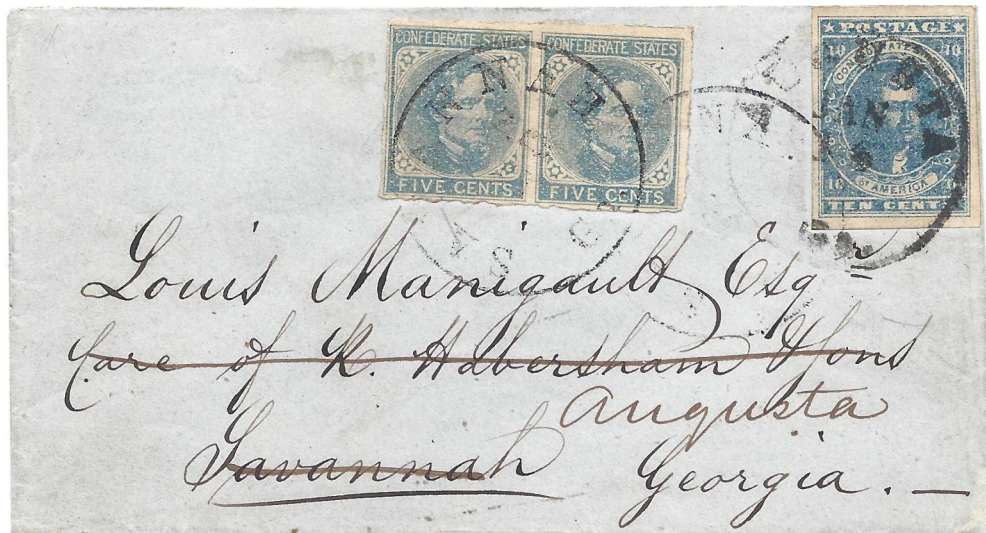 CONFEDERATE STATES CONFEDERATE STATES
FIVE CENTS FIVE CENTS
POSTAGE
10 10
CONFEDERATE STATES
OF AMERICA
10 10
TEN CENTS
Louis Manigault Esqr
Care of R. Habersham & Sons
Augusta
Savannah Georgia.